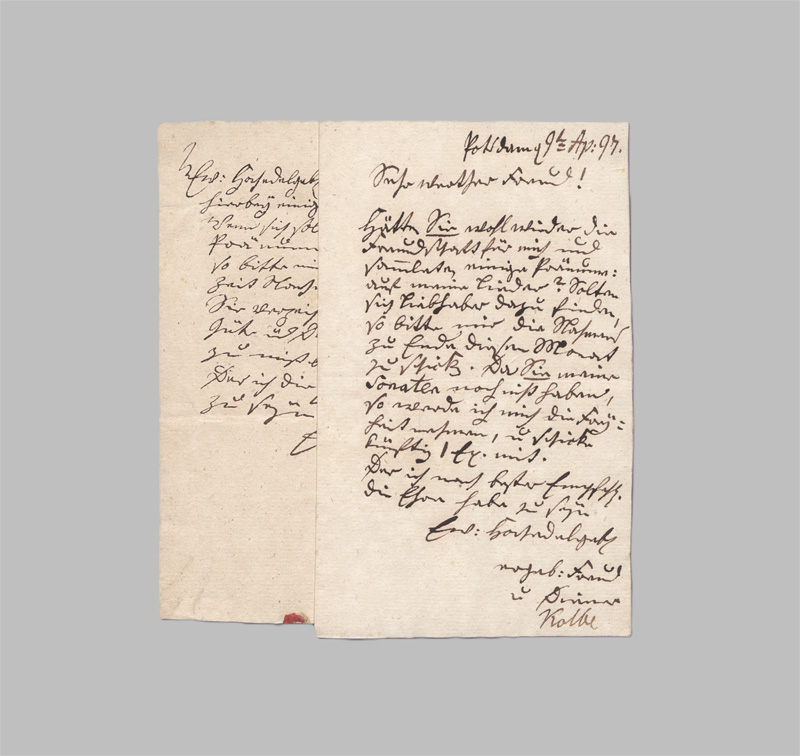 Ew: Hochedelgeb
hierbey einig
Wenn sich sol
Pränumer
so bitte mir
Zeit
Sie verzeih
Güte u
zu
Der ich die
zu seyn
E
Potsdam d 9t Ap: 97.
Sehr werther Freund!
Hätten Sie wohl wieder die
Freundschaft für mich und
sammleten einige Pränum:
auf meine Lieder? Solten
sich Liebhaber dazu finden,
so bitte mir die Nahmen
zu Ende dieses Monat
zu schick. Da Sie meine
Sonaten noch nicht haben,
so werde ich mich die Frey=
heit nehmen, u schicke
künftig 1 Ex. mit.
Der ich nach bester Empfehl.
die Ehre habe zu seyn
Ew: Hochedelgeb
ergeb: Freund
u Diener
Kolbe